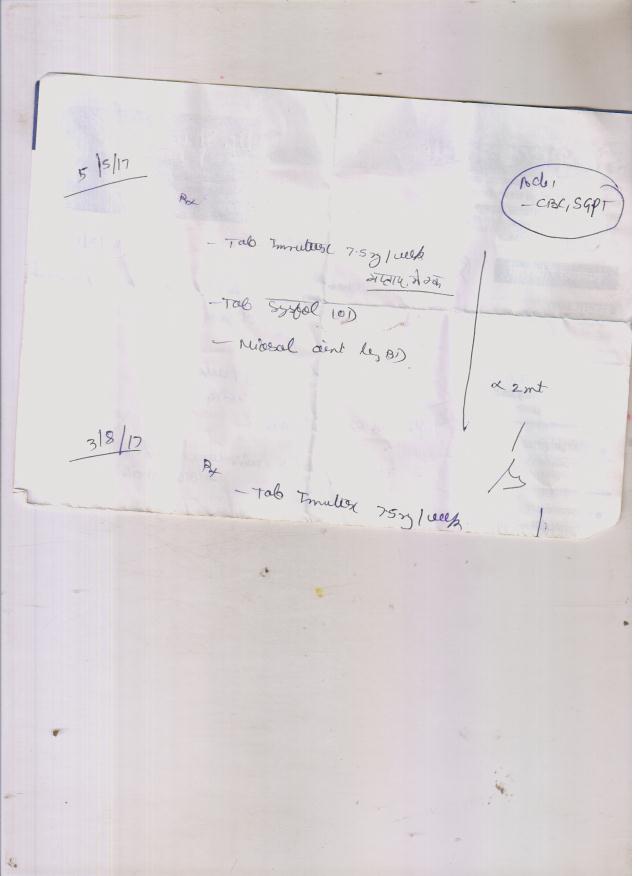 5/5/17
Adv,
- CBC, SGPT
Rx
- Tab Imutrex 7.5mg/week
सप्ताह में एक
- Tab 1OD
- oint BD
x 2 mt
3/8/17
Rx
- Tab Imutrex 7.5mg/week